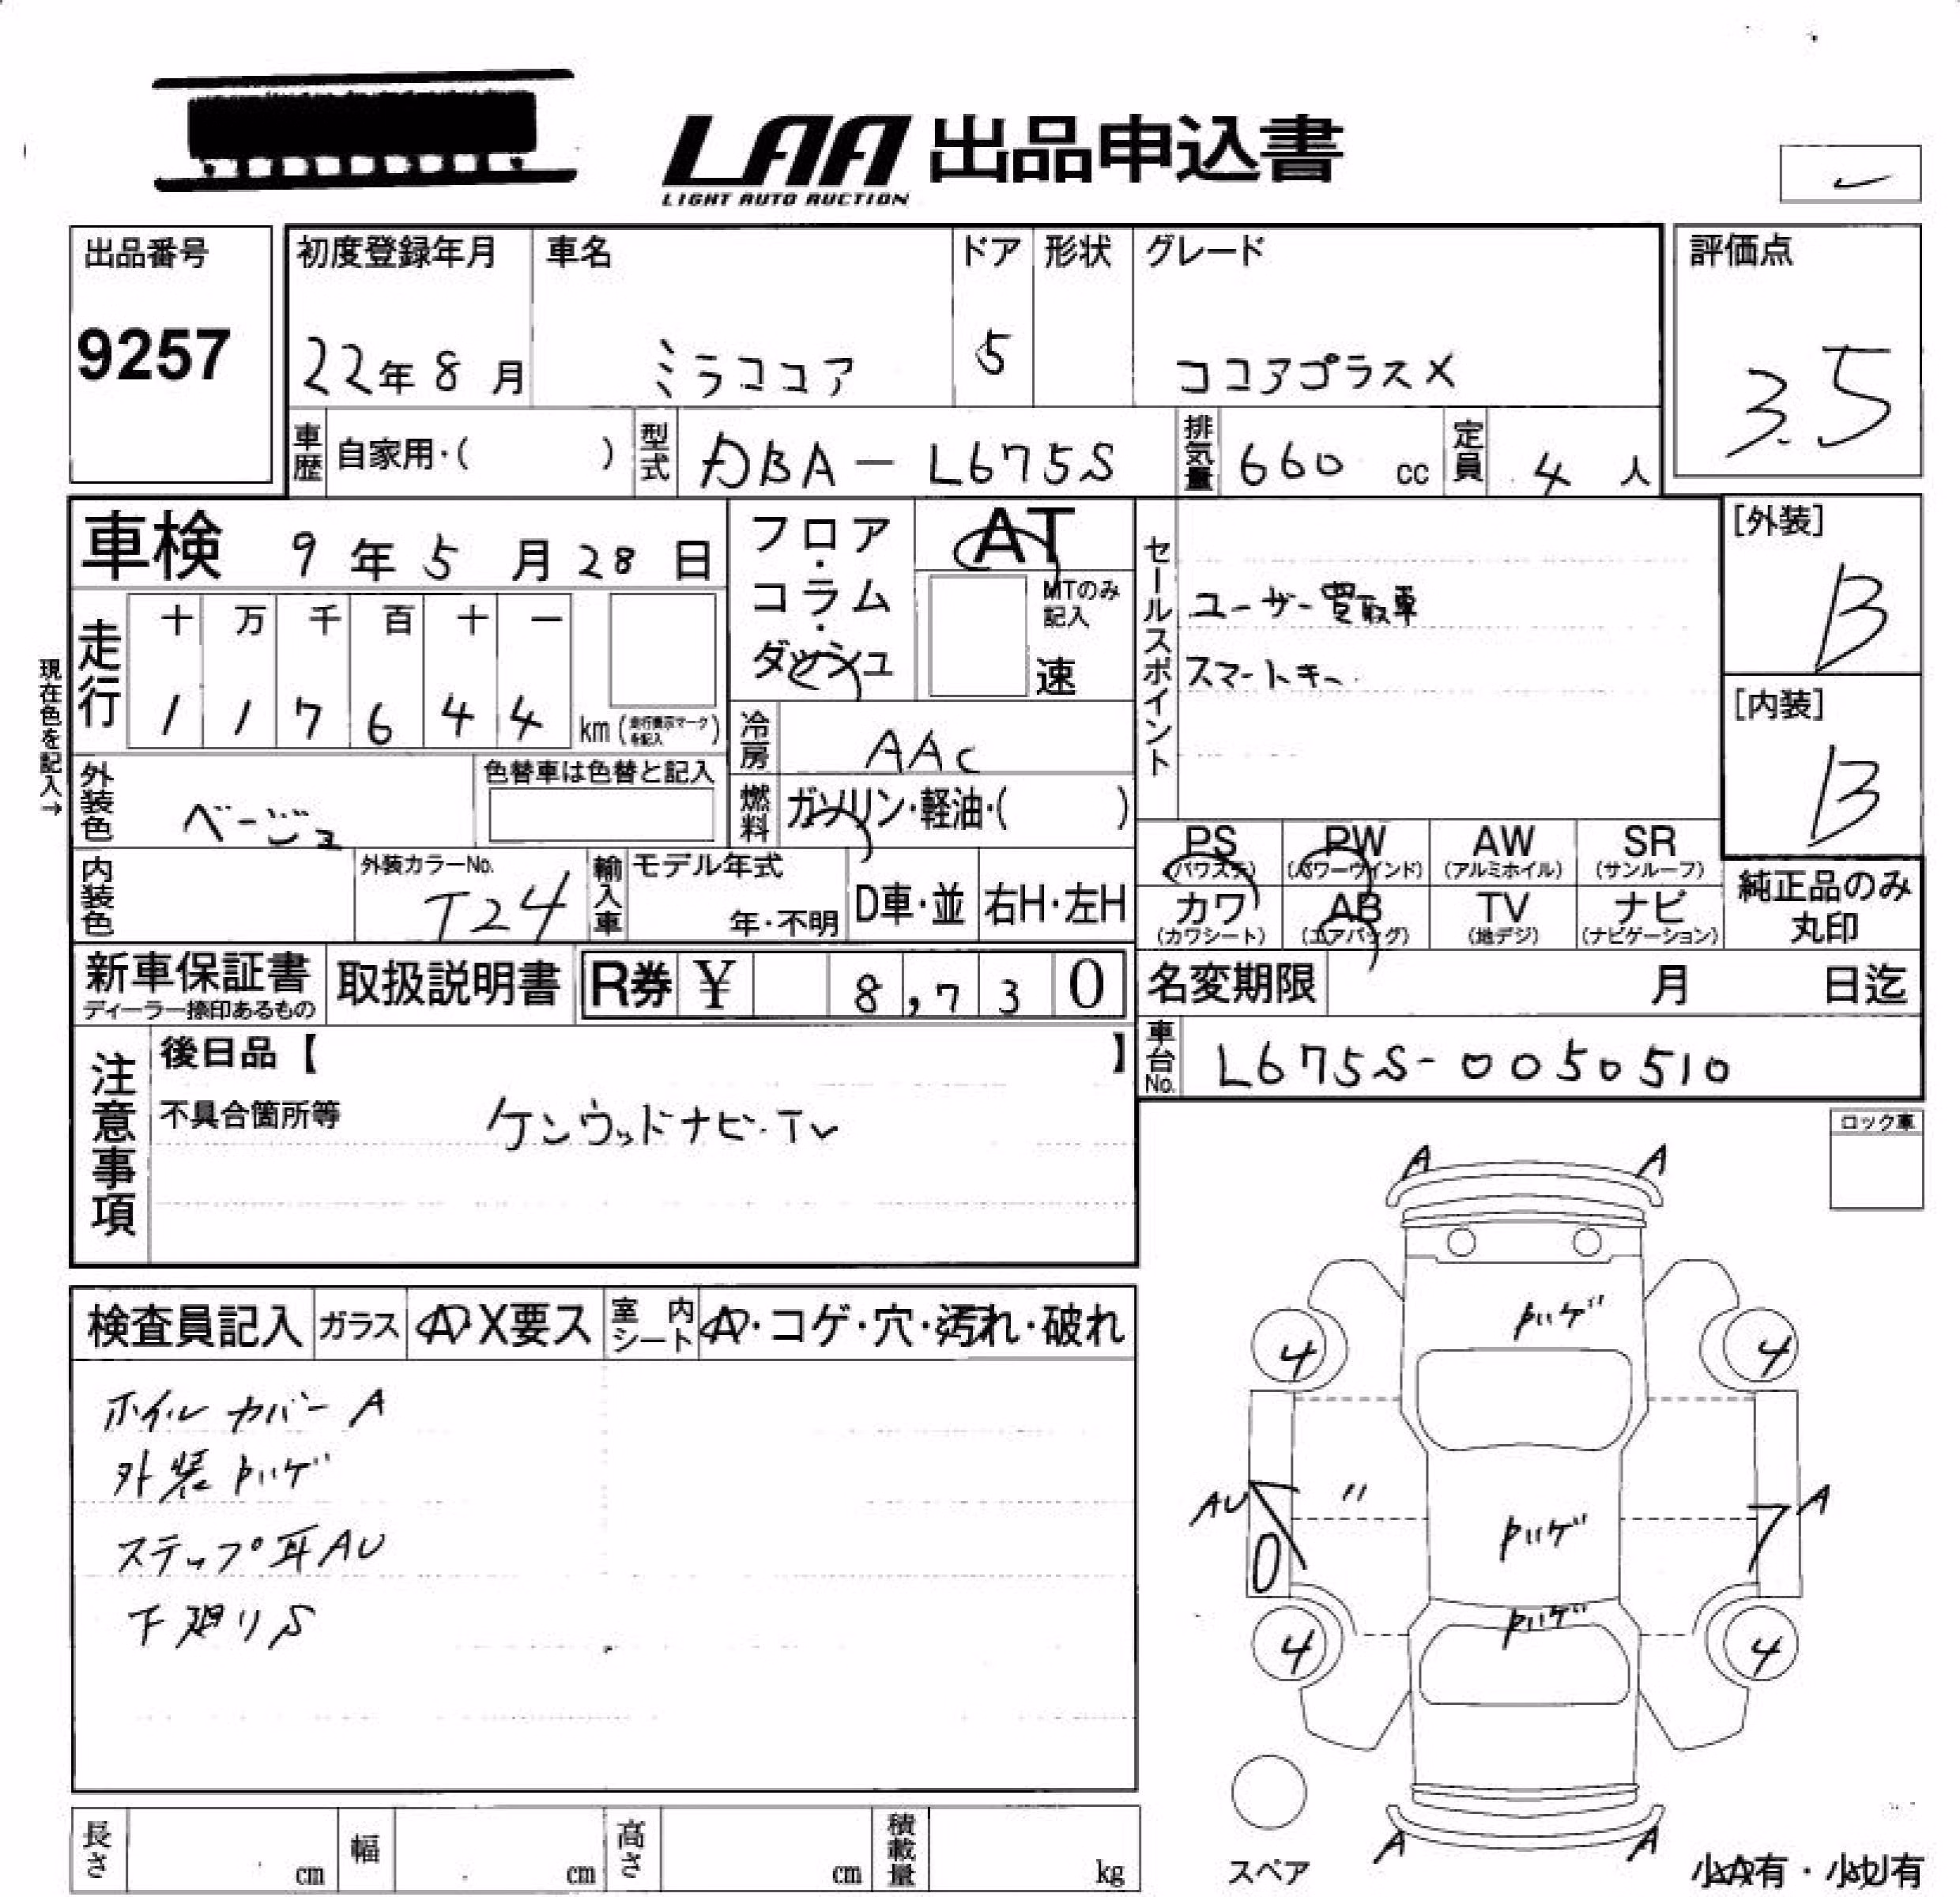 LAA 出品申込書
LIGHT AUTO AUCTION
出品番号
9257
初度登録年月
22年8月
車名
ミラココア
ドア
5
形状
グレード
ココアプラスX
評価点
3.5
車歴 自家用・( )
型式 DBA-L675S
排気量 660 cc
定員 4 人
車検 9年5月28日
フロア・コラム・ダッシュ
AT
MTのみ記入
速
セールスポイント
ユーザー買取車
スマートキー
[外装]
B
[内装]
B
現在色を記入→
走行
十 万 千 百 十 一
1 1 7 6 4 4 km (走行表示マークを記入)
冷房 AAC
外装色 ベージュ
色替車は色替と記入
燃料 ガソリン・軽油・( )
PS (パワステ)
PW (パワーウインド)
AW (アルミホイル)
SR (サンルーフ)
カワ (カワシート)
AB (エアバッグ)
TV (地デジ)
ナビ (ナビゲーション)
純正品のみ
丸印
内装色
外装カラーNo.
T24
輸入車
モデル年式
年・不明
D車・並
右H・左H
新車保証書
ディーラー捺印あるもの
取扱説明書
R券 ¥ 8,730
名変期限 月 日迄
車台No. L675S-0050510
注意事項
後日品【 】
不具合箇所等
ケンウッドナビ・TV
ロック車
検査員記入
ガラス A・X要ス
室内シート A・コゲ・穴・汚れ・破れ
ホイルカバーA
外装ハゲ
ステップ耳AU
下廻りS
A A
ハゲ
4 4
AU 〃 ハゲ A
ハゲ
4 4
A A
スペア
小A有・小U有
長さ cm
幅 cm
高さ cm
積載量 kg